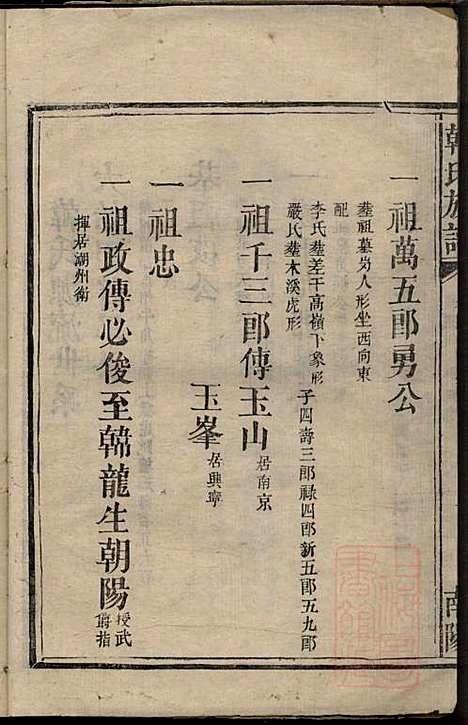 韓氏族譜
南陽
一祖萬五郎勇公
塟祖墓岗人形坐西向東
配
李氏塟差干高嶺下象形
嚴氏塟木溪虎形
子四壽三郎祿四郎新五郎五九郎
一祖千三郎傳玉山居南京
玉峯居興寧
一祖忠
一祖政傳必俊至韓龍生朝陽授武
爵指
揮居潮州衛